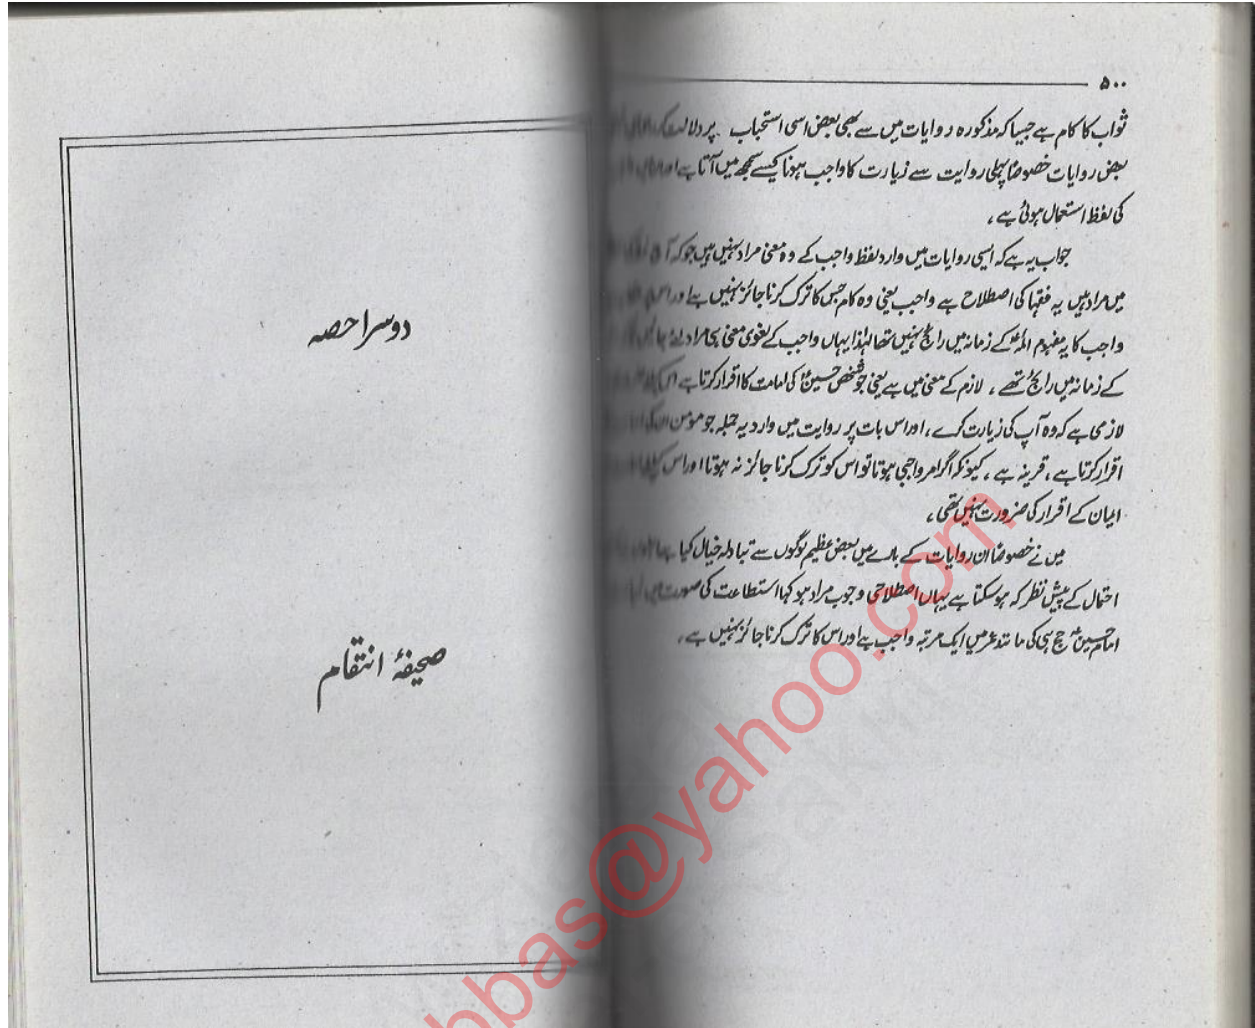 ۵۰۰
ثواب کا کام ہے جیسا کہ مذکورہ روایات میں سے بھی بعض اسی استحباب پر دلالت
بعض روایات خصوصاً پہلی روایت سے زیارت کا واجب ہونا کیسے سمجھ میں آتا ہے اور
کی لفظ استعمال ہوئی ہے ۔
جواب یہ ہے کہ ایسی روایات میں وارد لفظ واجب کے وہ معنی مراد نہیں ہیں جو کہ آج
میں مراد ہیں یہ فقہا کی اصطلاح ہے واجب یعنی وہ کام جس کا ترک کرنا جائز نہیں ہے اور اس
واجب کا یہ مفہوم ائمہؑ کے زمانہ میں رائج نہیں تھا لہٰذا یہاں واجب کے لغوی معنی ہی مراد
کے زمانہ میں رائج تھے ، لازم کے معنی میں ہے یعنی جو شخص حسینؑ کی امامت کا اقرار کرتا ہے اس
لازمی ہے کہ وہ آپ کی زیارت کرے ، اور اس بات پر روایت میں وارد یہ جملہ جو مومن ان کی
اقرار کرتا ہے ، قرینہ ہے ، کیونکہ اگر امر واجبی ہوتا تو اس کو ترک کرنا جائز نہ ہوتا اور اس
ایمان کے اقرار کی ضرورت نہیں تھی ،
میں نے خصوصاً ان روایات کے بارے میں بعض عظیم لوگوں سے تبادلہ خیال کیا
احتمال کے پیش نظر کہ ہو سکتا ہے یہاں اصطلاحی وجوب مراد ہو کہا استطاعت کی صورت میں
امام حسینؑ حج ہی کی مانند عمر میں ایک مرتبہ واجب ہے اور اس کا ترک کرنا جائز نہیں ہے ۔
دوسرا حصہ
صحیفۂ انتقام
bbas@yahoo.com